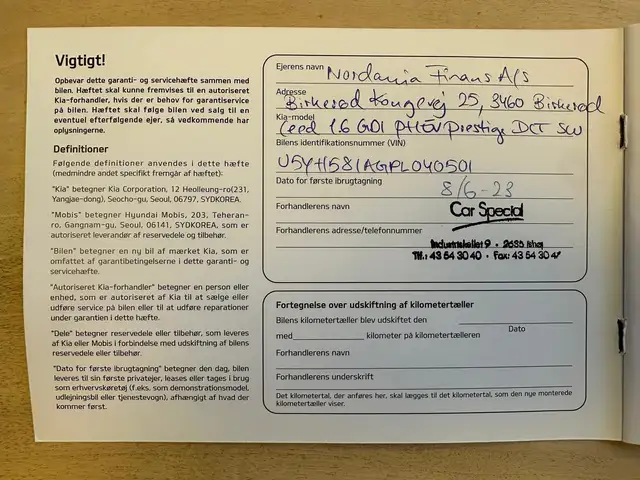 Vigtigt!
Opbevar dette garanti- og servicehæfte sammen med
bilen. Hæftet skal kunne fremvises til en autoriseret
Kia-forhandler, hvis der er behov for garantiservice
på bilen. Hæftet skal følge bilen ved salg til en
eventuel efterfølgende ejer, så vedkommende har
oplysningerne.
Definitioner
Følgende definitioner anvendes i dette hæfte
(medmindre andet specifikt fremgår af hæftet):
"Kia" betegner Kia Corporation, 12 Heolleung-ro(231,
Yangjae-dong), Seocho-gu, Seoul, 06797, SYDKOREA.
"Mobis" betegner Hyundai Mobis, 203, Teheran-
ro, Gangnam-gu, Seoul, 06141, SYDKOREA, som er
autoriseret leverandør af reservedele og tilbehør.
"Bilen" betegner en ny bil af mærket Kia, som er
omfattet af garantibetingelserne i dette garanti- og
servicehæfte.
"Autoriseret Kia-forhandler" betegner en person eller
enhed, som er autoriseret af Kia til at sælge eller
udføre service på biler eller til at udføre reparationer
under garantien i dette hæfte.
"Dele" betegner reservedele eller tilbehør, som leveres
af Kia eller Mobis i forbindelse med udskiftning af bilens
reservedele eller tilbehør.
"Dato for første ibrugtagning" betegner den dag, bilen
leveres til sin første privatejer, leases eller tages i brug
som erhvervskøretøj (f.eks. som demonstrationsmodel,
udlejningsbil eller tjenestevogn), afhængigt af hvad der
kommer først.
Ejerens navn Nordania Finans A/S
Adresse
Birkerød Kongevej 25, 3460 Birkerød
Kia-model
Ceed 1.6 GDI PHEV prestige DCT SW
Bilens identifikationsnummer (VIN)
U5YH1581AGPL040501
Dato for første ibrugtagning 8/6-23
Forhandlerens navn Car Special
Forhandlerens adresse/telefonnummer
Industriskellet 9 • 2635 Ishøj
Tlf.: 43 54 30 40 • Fax: 43 54 30 47
Fortegnelse over udskiftning af kilometertæller
Bilens kilometertæller blev udskiftet den
Dato
med kilometer på kilometertælleren
Forhandlerens navn
Forhandlerens underskrift
Det kilometertal, der anføres her, skal lægges til det kilometertal, som den nye monterede
kilometertæller viser.